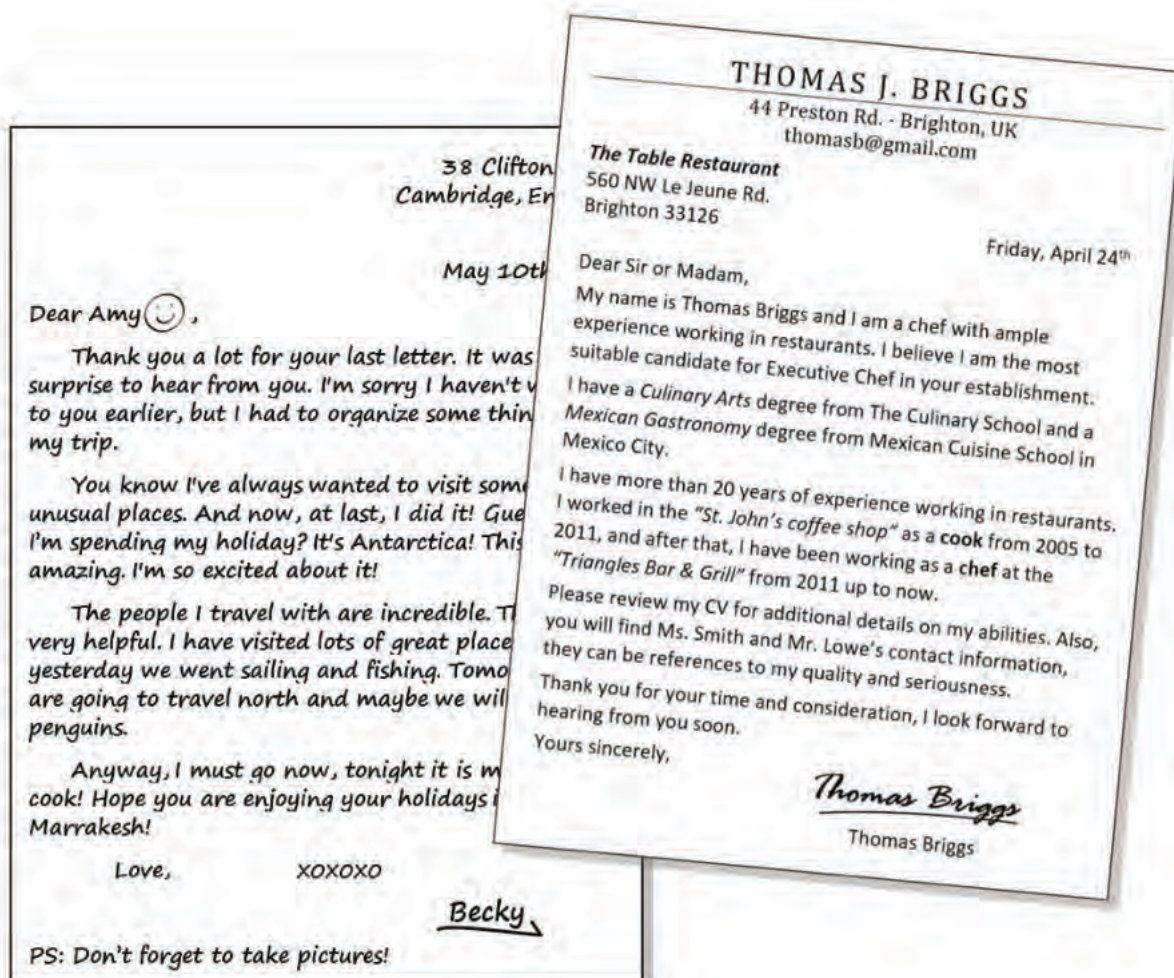 38 Clifton
Cambridge,
May 10th
Dear Amy ,
Thank you a lot for your last letter. It was
surprise to hear from you. I'm sorry I haven't
to you earlier, but I had to organize some
my trip.
You know I've always wanted to visit
unusual places. And now, at last, I did it!
I'm spending my holiday? It's Antarctica!
amazing. I'm so excited about it!
The people I travel with are incredible.
very helpful. I have visited lots of great
yesterday we went sailing and fishing.
are going to travel north and maybe we
penguins.
Anyway, I must go now, tonight it is
cook! Hope you are enjoying your holidays
Marrakesh!
Love, xoxoxo
Becky
PS: Don't forget to take pictures!
THOMAS J. BRIGGS
44 Preston Rd. - Brighton, UK
thomasb@gmail.com
The Table Restaurant
560 NW Le Jeune Rd.
Brighton 33126
Friday, April 24th
Dear Sir or Madam,
My name is Thomas Briggs and I am a chef with ample
experience working in restaurants. I believe I am the most
suitable candidate for Executive Chef in your establishment.
I have a Culinary Arts degree from The Culinary School and a
Mexican Gastronomy degree from Mexican Cuisine School in
Mexico City.
I have more than 20 years of experience working in restaurants.
I worked in the "St. John's coffee shop" as a cook from 2005 to
2011, and after that, I have been working as a chef at the
"Triangles Bar & Grill" from 2011 up to now.
Please review my CV for additional details on my abilities. Also,
you will find Ms. Smith and Mr. Lowe's contact information,
they can be references to my quality and seriousness.
Thank you for your time and consideration, I look forward to
hearing from you soon.
Yours sincerely,
Thomas Briggs
Thomas Briggs